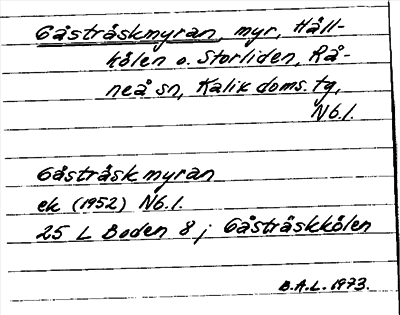 Gåsträskmyran, myr, Håll-
kölen o. Storliden, Rå-
neå sn, Kalix doms. tg,
Nb.l.
Gåsträskmyran
ek (1952) Nb.l.
25 L Boden 8 j Gåsträskkölen
B.A.L. 1973.